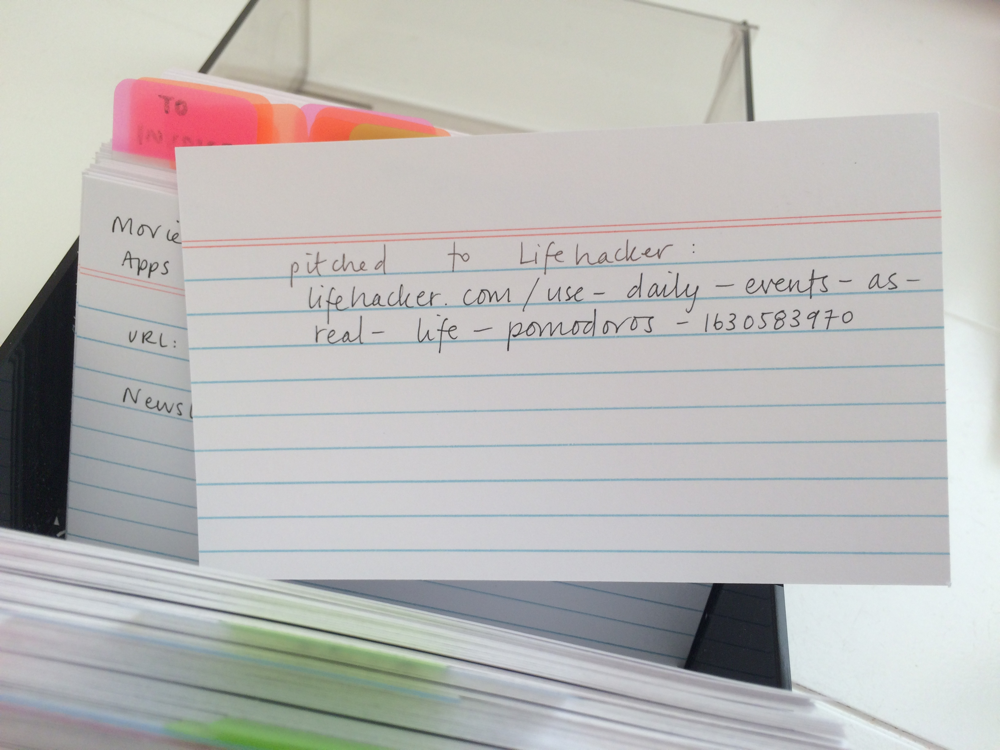 TO
Movie
Apps
URL:
pitched to Lifehacker:
lifehacker.com/use-daily-events-as-
real-life-pomodoros-1630583970